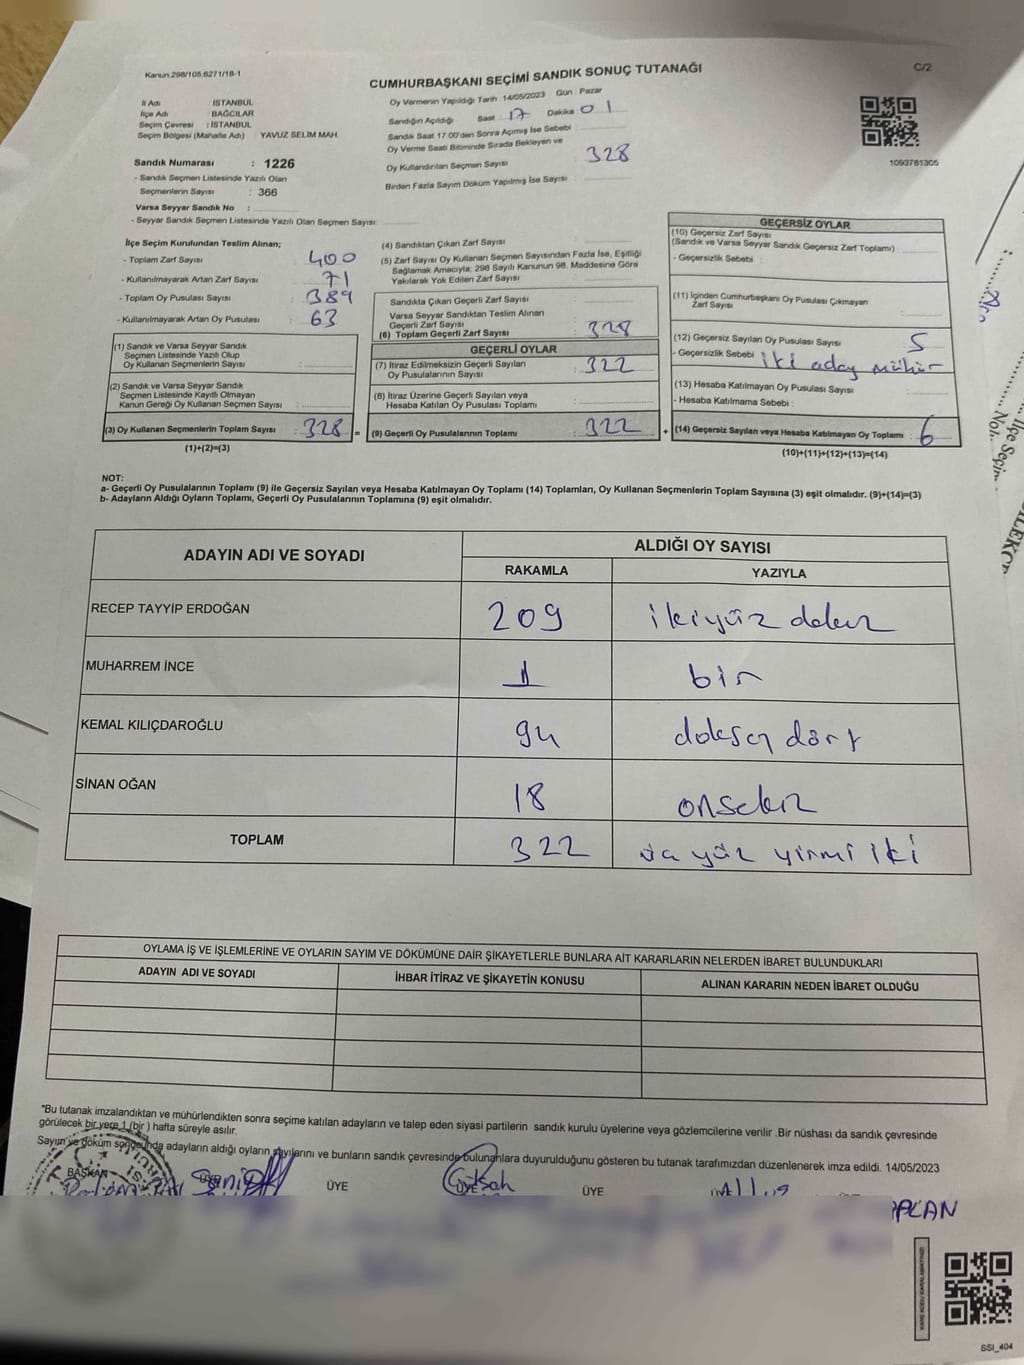 Kanun 298/105.6271/18-1
CUMHURBAŞKANI SEÇİMİ SANDIK SONUÇ TUTANAĞI
C/2
İl Adı : İSTANBUL
İlçe Adı : BAĞCILAR
Seçim Çevresi : İSTANBUL
Seçim Bölgesi (Mahalle Adı) YAVUZ SELİM MAH.
Sandık Numarası : 1226
- Sandık Seçmen Listesinde Yazılı Olan
Seçmenlerin Sayısı : 366
Varsa Seyyar Sandık No :
- Seyyar Sandık Seçmen Listesinde Yazılı Olan Seçmen Sayısı:
Oy Vermenin Yapıldığı Tarih : 14/05/2023 Gün : Pazar
Sandığın Açıldığı Saat : 17 Dakika : 01
Sandık Saat 17.00'den Sonra Açımış İse Sebebi :
Oy Verme Saati Bitiminde Sırada Bekleyen ve
Oy Kullandırılan Seçmen Sayısı : 328
Birden Fazla Sayım Döküm Yapılmış İse Sayısı :
1093781305
İlçe Seçim Kurulundan Teslim Alınan;
- Toplam Zarf Sayısı : 400
- Kullanılmayarak Artan Zarf Sayısı : 71
- Toplam Oy Pusulası Sayısı : 389
- Kullanılmayarak Artan Oy Pusulası : 63
(1) Sandık ve Varsa Seyyar Sandık
Seçmen Listesinde Yazılı Olup
Oy Kullanan Seçmenlerin Sayısı :
(2) Sandık ve Varsa Seyyar Sandık
Seçmen Listesinde Kayıtlı Olmayan
Kanun Gereği Oy Kullanan Seçmen Sayısı :
(3) Oy Kullanan Seçmenlerin Toplam Sayısı : 328 =
(1)+(2)=(3)
(4) Sandıktan Çıkan Zarf Sayısı :
(5) Zarf Sayısı Oy Kullanan Seçmen Sayısından Fazla İse, Eşitliği
Sağlamak Amacıyla; 298 Sayılı Kanunun 98. Maddesine Göre
Yakılarak Yok Edilen Zarf Sayısı :
Sandıkta Çıkan Geçerli Zarf Sayısı :
Varsa Seyyar Sandıktan Teslim Alınan
Geçerli Zarf Sayısı :
(6) Toplam Geçerli Zarf Sayısı : 328
GEÇERLİ OYLAR
(7) İtiraz Edilmeksizin Geçerli Sayılan
Oy Pusulalarının Sayısı : 322
(8) İtiraz Üzerine Geçerli Sayılan veya
Hesaba Katılan Oy Pusulası Toplamı :
(9) Geçerli Oy Pusulalarının Toplamı : 322 +
GEÇERSİZ OYLAR
(10) Geçersiz Zarf Sayısı
(Sandık ve Varsa Seyyar Sandık Geçersiz Zarf Toplamı) :
- Geçersizlik Sebebi :
(11) İçinden Cumhurbaşkanı Oy Pusulası Çıkmayan
Zarf Sayısı :
(12) Geçersiz Sayılan Oy Pusulası Sayısı : 5
- Geçersizlik Sebebi : iki aday mühür
(13) Hesaba Katılmayan Oy Pusulası Sayısı :
- Hesaba Katılmama Sebebi :
(14) Geçersiz Sayılan veya Hesaba Katılmayan Oy Toplamı : 6
(10)+(11)+(12)+(13)=(14)
NOT:
a- Geçerli Oy Pusulalarının Toplamı (9) ile Geçersiz Sayılan veya Hesaba Katılmayan Oy Toplamı (14) Toplamları, Oy Kullanan Seçmenlerin Toplam Sayısına (3) eşit olmalıdır. (9)+(14)=(3)
b- Adayların Aldığı Oyların Toplamı, Geçerli Oy Pusulalarının Toplamına (9) eşit olmalıdır.
ADAYIN ADI VE SOYADI
ALDIĞI OY SAYISI
RAKAMLA YAZIYLA
RECEP TAYYİP ERDOĞAN 209 ikiyüz dokuz
MUHARREM İNCE 1 bir
KEMAL KILIÇDAROĞLU 94 doksan dört
SİNAN OĞAN 18 onsekiz
TOPLAM 322 üç yüz yirmi iki
OYLAMA İŞ VE İŞLEMLERİNE VE OYLARIN SAYIM VE DÖKÜMÜNE DAİR ŞİKAYETLERLE BUNLARA AİT KARARLARIN NELERDEN İBARET BULUNDUKLARI
ADAYIN ADI VE SOYADI İHBAR İTİRAZ VE ŞİKAYETİN KONUSU ALINAN KARARIN NEDEN İBARET OLDUĞU
*Bu tutanak imzalandıktan ve mühürlendikten sonra seçime katılan adayların ve talep eden siyasi partilerin sandık kurulu üyelerine veya gözlemcilerine verilir .Bir nüshası da sandık çevresinde
görülecek bir yere 1 (bir ) hafta süreyle asılır.
Sayım ve döküm sonucunda adayların aldığı oyların sayılarını ve bunların sandık çevresinde bulunanlara duyurulduğunu gösteren bu tutanak tarafımızdan düzenlenerek imza edildi. 14/05/2023
BAŞKAN ÜYE ÜYE ÜYE ÜYE
SSI_404